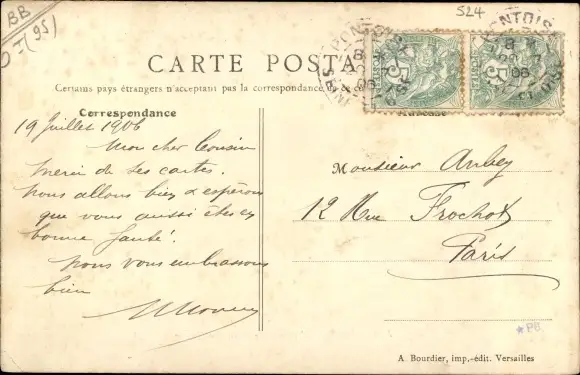 BB
(95)
524
CARTE POSTA
Certains pays étrangers n'acceptant pas la correspondance
Correspondance
19 Juillet 1906
Mon cher Cousin
merci de ses cartes.
nous allons bien & espérons
que vous aussi êtes en
bonne santé.
nous vous embrassons
bien
PONTOISE
5
5
PONTOISE
8
20
7
06
Monsieur Aubey
12 Rue Frochot
Paris
*PB
A. Bourdier, imp.-édit. Versailles